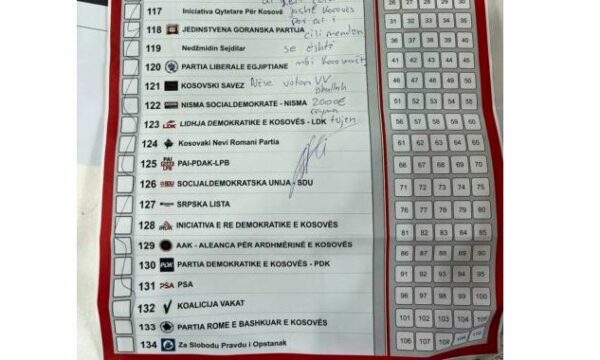 117 Iniciativa Qytetare Për Kosovë jashtë Kosovës
118 JEDINSTVENA GORANSKA PARTIJA
cili mendon
119 Nedžmidin Sejdilar se është
120 PARTIA LIBERALE EGJIPTIANE mbi
121 KOSOVSKI SAVEZ Nëse voton VV
122 NISMA SOCIALDEMOKRATE - NISMA 2000€
123 LDK LIDHJA DEMOKRATIKE E KOSOVËS - LDK
124 Kosovaki Nevi Romani Partia
125 PAI PDAK LPB PAI-PDAK-LPB
126 SDU SOCIJALDEMOKRATSKA UNIJA - SDU
127 SRPSKA LISTA
128 INICIATIVA E RE DEMOKRATIKE E KOSOVËS
129 AAK - ALEANCA PËR ARDHMËRINË E KOSOVËS
130 PDK PARTIA DEMOKRATIKE E KOSOVËS - PDK
131 PSA PSA
132 KOALICIJA VAKAT
133 PARTIA ROME E BASHKUAR E KOSOVËS
134 Za Slobodu Pravdu i Opstanak
26 27 28 29 30
31 32 33 34 35
36 37 38 39 40
41 42 43 44 45
46 47 48 49 50
51 52 53 54 55
56 57 58 59 60
61 62 63 64 65
66 67 68 69 70
71 72 73 74 75
76 77 78 79 80
81 82 83 84 85
86 87 88 89 90
91 92 93 94 95
96 97 98 99 100
101 102 103 104 105
106 107 108 109 110